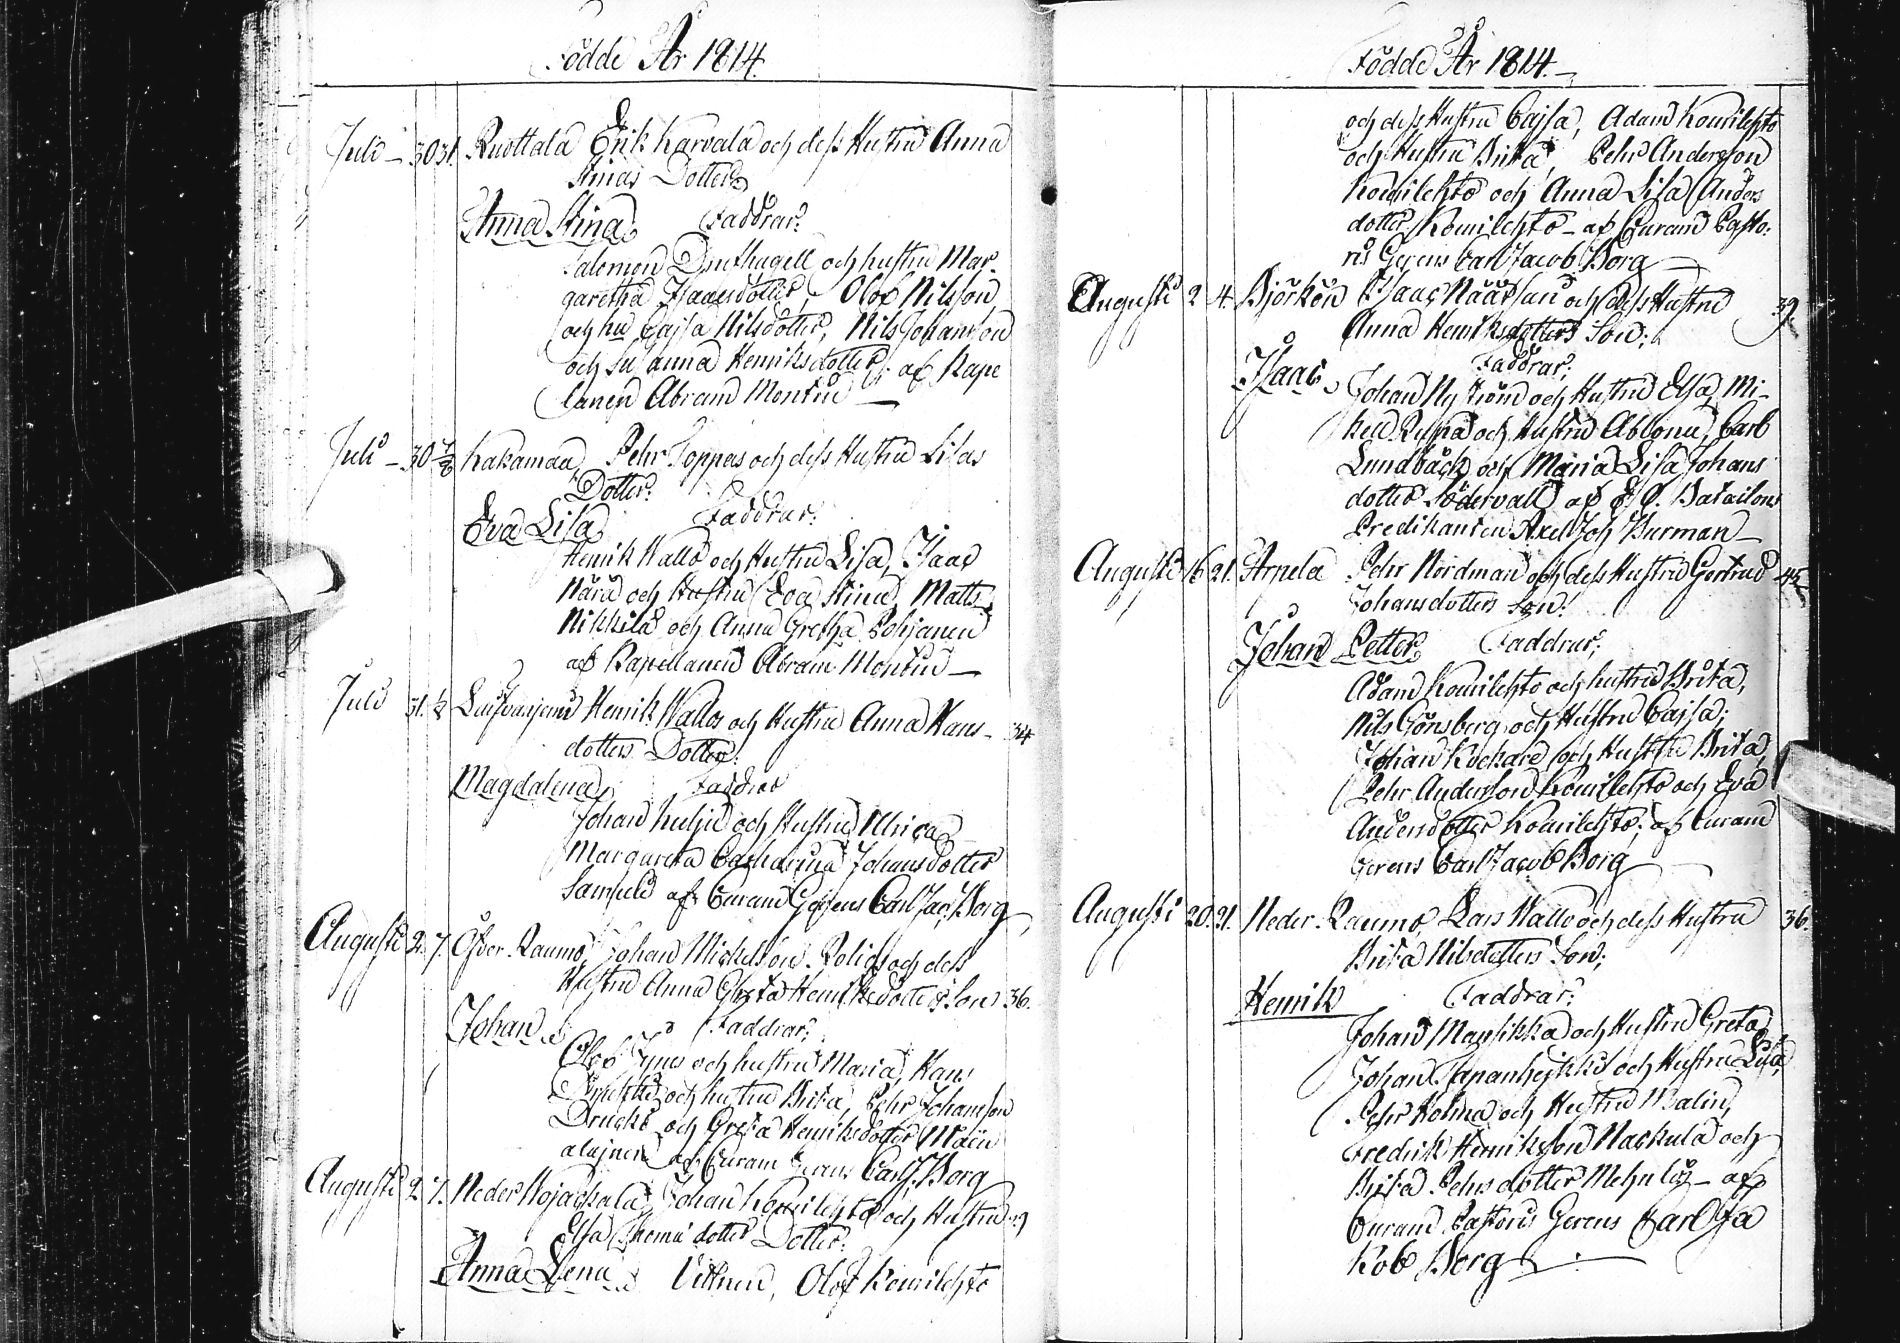 Födde År 1814.
Juli 30 31. Ruottala Erik Karvala och dess Hustru Anna
Stinas Dotter
Anna Stina Faddrar:
Salomon och hustru Mar-
garetha Isaacsdotter, Olof Nilsson
och hu Cajsa Nilsdotter, Nils Johansson
och Susanna Henriksdotter; af Kape
lanen Abram Montin
Juli 30 7/8 Kakamaa, Pehr Toppas och dess Hustru Lisas
Dotter:
Eva Lisa Faddrar:
Henrik Wallo och Hustru Lisa, Isaac
Närä och Hustru Eva Stina, Matts
Nikkilä och Anna Gretha Pohjanen
af Kapellanen Abram Montin
Juli 31. Henrik Wallos och Hustru Anna Hans- 34
dotters Dotter:
Magdalena, Faddrar
Johan och Hustru Ulrica
Margareta Catharina Johansdotter
af Curam Gerens Carl Jac. Borg
Augusti 2. 7. Öfver-Raumo, Johan Mickelsson och dess
Hustru Anna Greta Henriksdotters Son 36.
Johan Faddrar:
Olof och hustru Maria, Hans
och hustru Brita, Pehr Johansson
Drucki och Greta Henriksdotter
af Curam Gerens Carl J. Borg
Augusti 2 7. Neder Wojackala, Johan Kouilehto och Hustru
Elsa dotter Dotter:
Anna Lena Vittnen, Olof Kouilehto
Födde År 1814.
och dess Hustru Cajsa, Adam Kouilehto
och Hustru Brita, Pehr Andersson
Kouilehto och Anna Lisa Anders
dotter Kouilehto af Curam Pasto-
ris Gerens Carl Jacob Borg
Augusti 2 4. Björkön Isaac och dess Hustru 39.
Anna Henriksdotters Son;
Isaac Faddrar;
Johan Nyström och Hustru Elsa, Mi-
kel och Hustru Ablona, Carl
Lundbäck och Maria Lisa Johans
dotter Södervall af E. O. Batailons
Predikanten Axel Joh Burman
Augusti 16 21. Arpela Pehr Nordman och dess Hustru Gertrud 45
Johansdotters Son:
Johan Petter Faddrar;
Adam Kouilehto och hustru Brita,
Nils Gönsberg och Hustru Cajsa;
Johan och Hustru Brita,
Pehr Andersson Kouilehto och Eva
Andersdotter Kouilehto; af Curam
Gerens Carl Jacob Borg
Augusti 20. 21. Neder-Raumo, Lars Wallo och dess Hustru 36.
Brita Nilsdotters Son;
Henrik Faddrar:
Johan Mansikka och Hustru Greta
Johan och Hustru Lisa,
Pehr Holma och Hustru Malin,
Fredrik Henriksson Harkula och
Brita Pehrsdotter af
Curam Pastoris Gerens Carl Ja
kob Borg